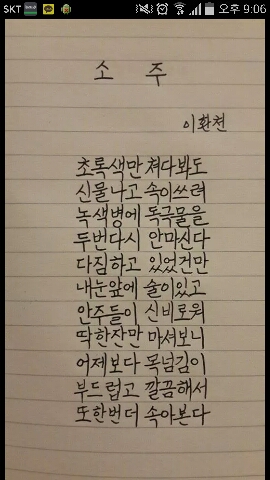 SKT 오후 9:06
소 주
이환천
초록색만 쳐다봐도
신물나고 속이쓰려
녹색병에 독극물을
두번다시 안마신다
다짐하고 있었건만
내눈앞에 술이있고
안주들이 신비로워
딱한잔만 마셔보니
어제보다 목넘김이
부드럽고 깔끔해서
또한번더 속아본다